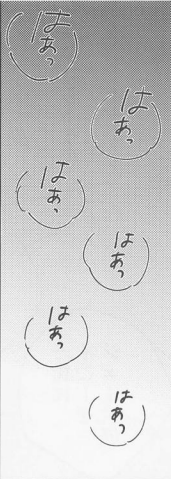 はあっ
はあっ
はあっ
はあっ
はあっ
はあっ